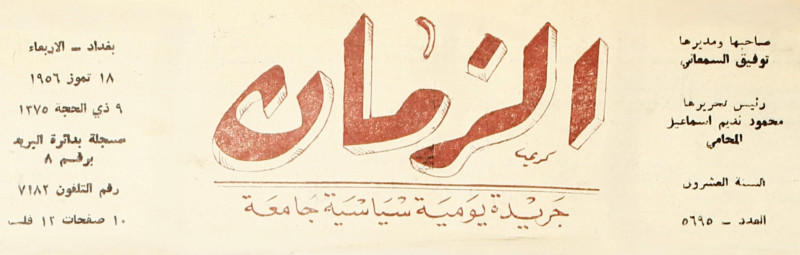 صاحبها ومديرها
توفيق السمعاني
رئيس تحريرها
محمود نديم اسماعيل
المحامي
السنة العشرون
العدد – ٥٦٩٥
الزمان
كريم
جريدة يومية سياسية جامعة
بغداد – الاربعاء
١٨ تموز ١٩٥٦
٩ ذي الحجة ١٣٧٥
مسجلة بدائرة البريد
برقم ٨
رقم التلفون ٧١٨٢
١٠ صفحات ١٢ فلسا